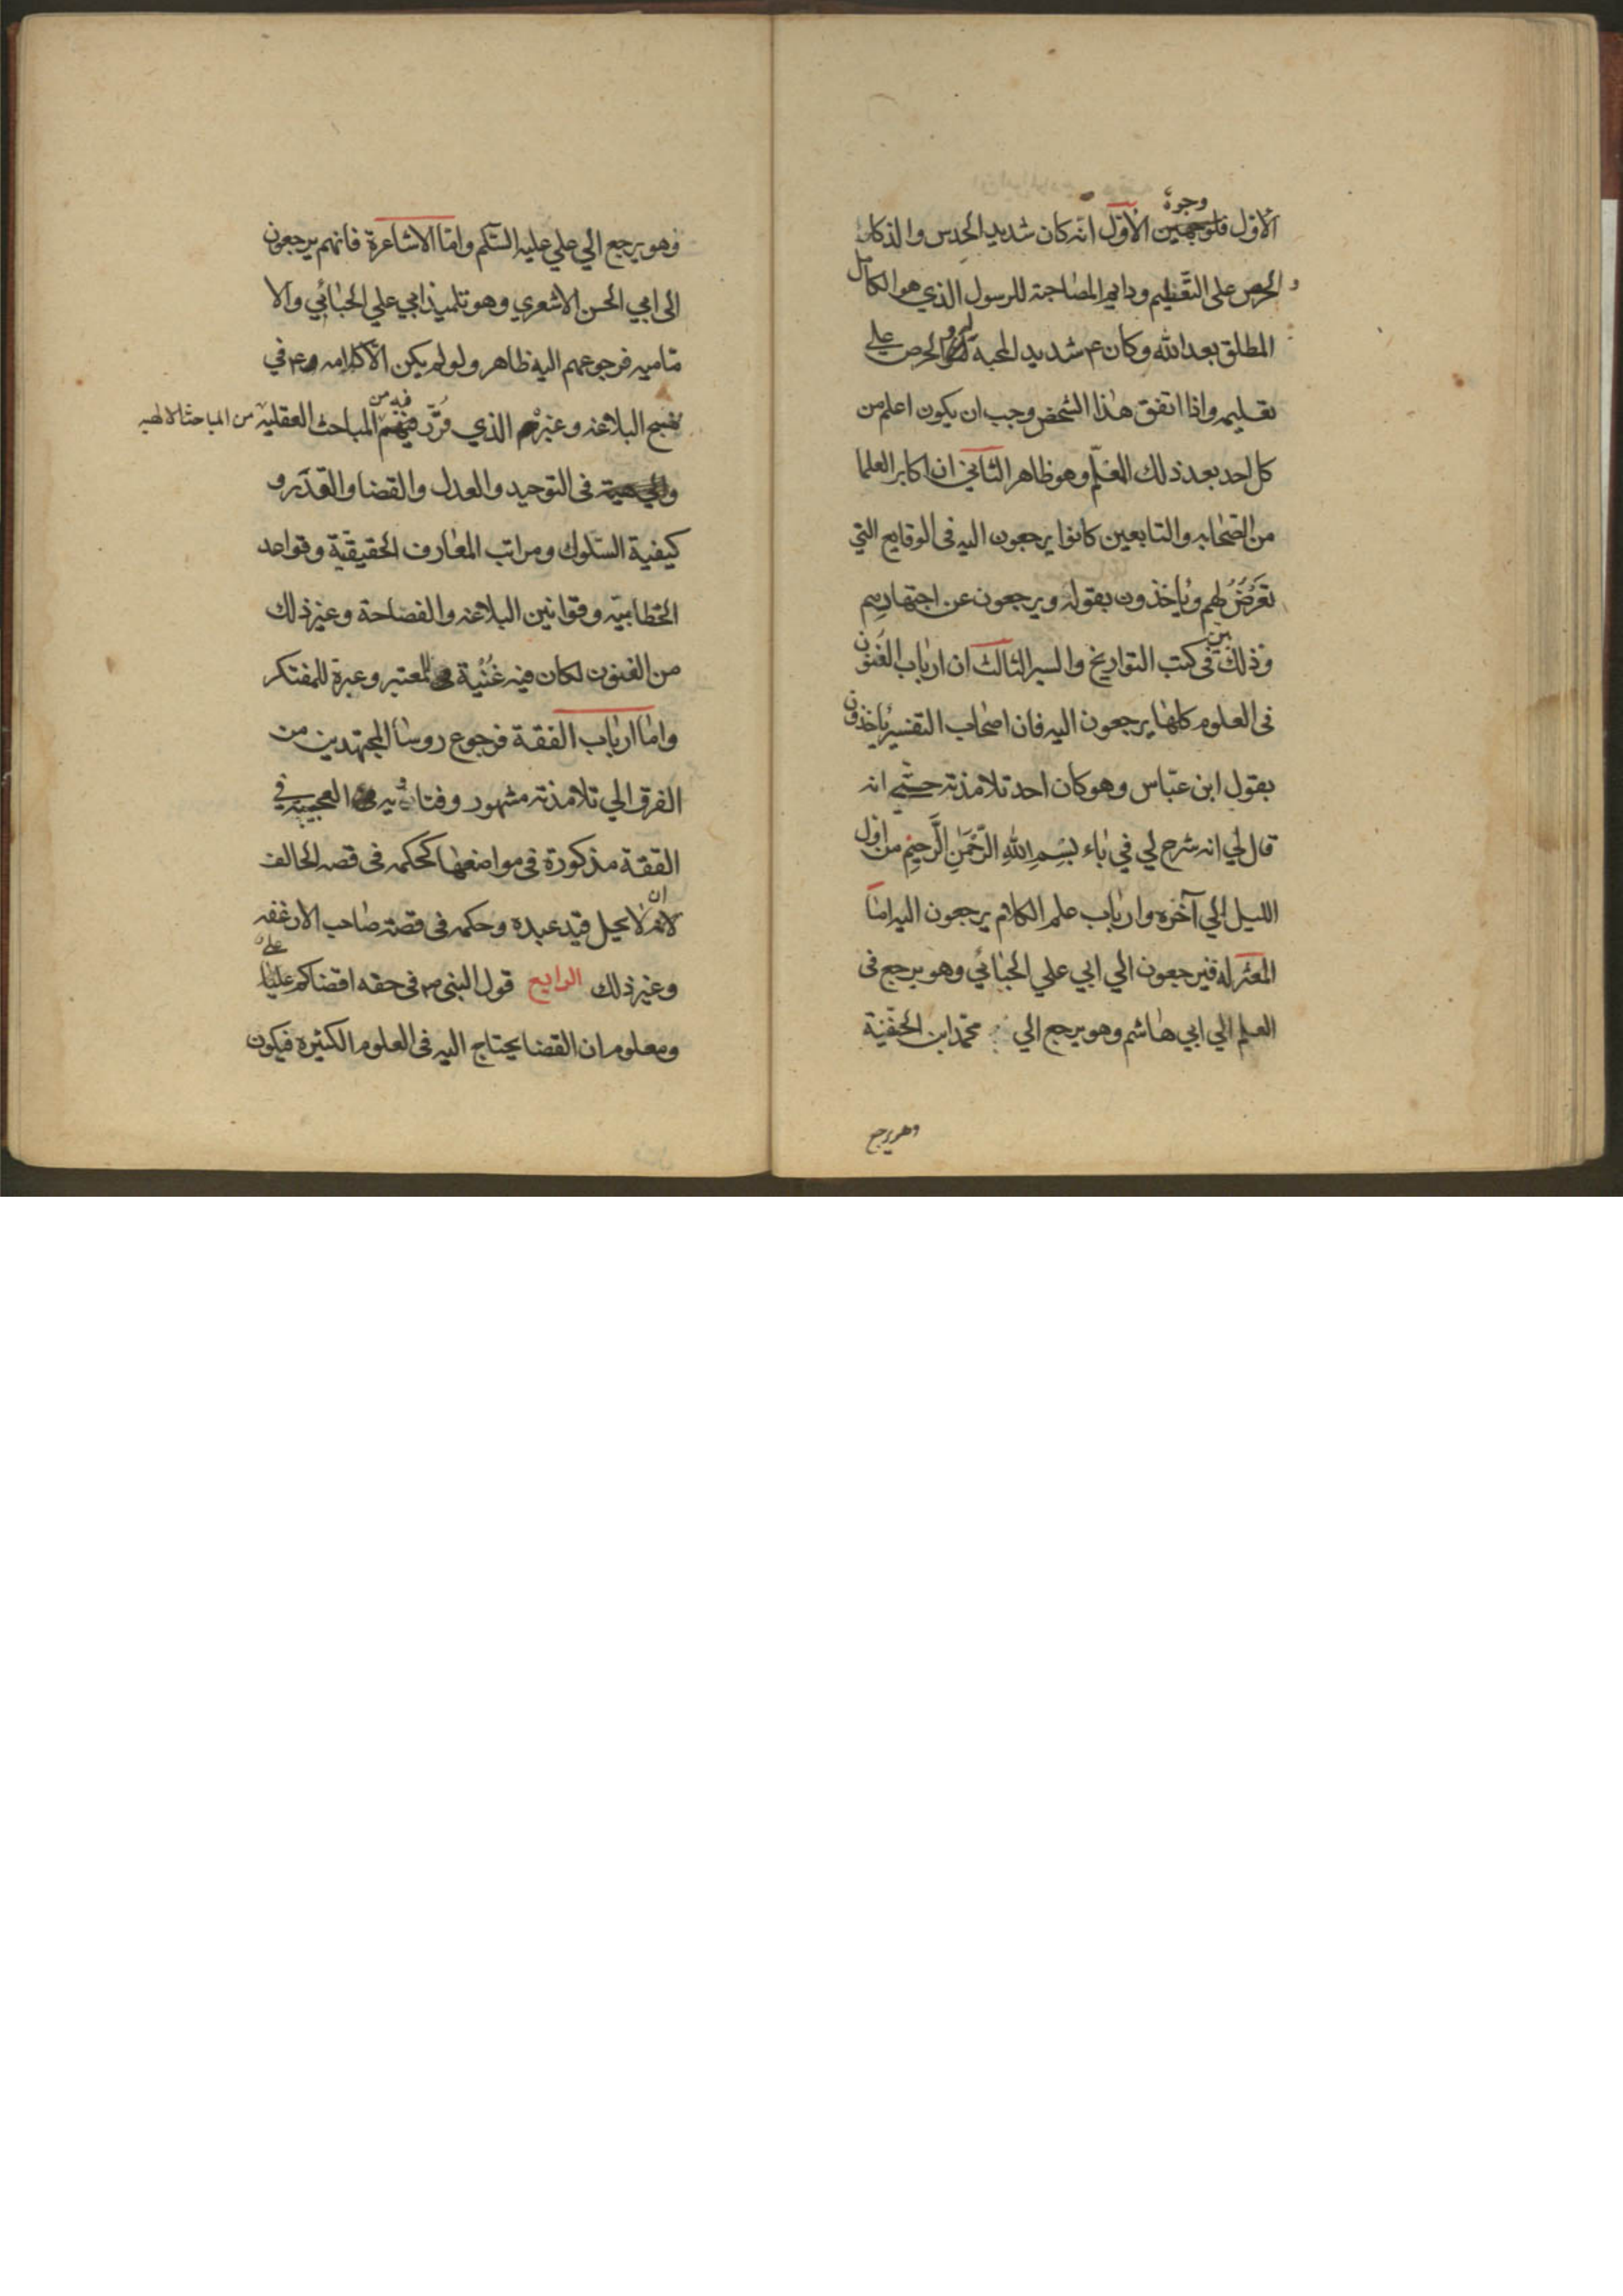 الاوّل فلوجهين وجوه الاوّل انه كان شديد الحدس والذكاء
و الحرص على التعظيم ودايم المصاحبة للرسول الذي هو الكامل
المطلق بعد الله وكان ع شديد المحبة له والحرص على
تعليمه واذا اتفق هذا الشخص وجب ان يكون اعلم من
كل احد بعد ذلك المعلّم وهو ظاهر الثاني ان اكابر العلما
من الصّحابه والتابعين كانوا يرجعون اليه في الوقايع التي
تعرض لهم وياخذون بقوله ويرجعون عن اجتهادهم
وذلك بيّن في كتب التواريخ والسير الثالث ان ارباب الفنون
في العلوم كلها يرجعون اليه فان اصحاب التفسير ياخذون
بقول ابن عبّاس وهو كان احد تلامذته حتّى انه
قال لي انه شرح لي في باء بِسْمِ اللهِ الرَّحْمَنِ الرَّحِيمِ من اوّل
الليل الي آخره وارباب علم الكلام يرجعون اليه امّا
المعتزله فيرجعون الي ابي علي الجبّائي وهو يرجع في
العلم الي ابي هاشم وهو يرجع الي محمّد ابن الحنفيّة
وهو يرجع
وهو يرجع الي علي عليه السّلم وامّا الاشاعرة فانهم يرجعون
الى ابي الحسن الاشعري وهو تلميذ ابي علي الجبّائي والا
ماميه فرجوعهم اليه ظاهر ولو لم يكن الّا كلامه ع في
نهج البلاغه وغيرهم الذي قرّر فيه من المباحث العقلية من المباحث الالهيه
في التوحيد والعدل والقضا والقدر و
كيفية السّلوك ومراتب المعارف الحقيقيّة وقواعد
الخطابيّه وقوانين البلاغه والفصاحة وغير ذلك
من الفنون لكان فيه غُنْية للمعتبر وعبرة للمفتكر
وامّا ارباب الفقة فرجوع روسا المجتهدين من
الفرق الي تلامذته مشهور وفتاويه العجيبة في
الفقة مذكورة في مواضعها كحكمه في قصه الحالف
ان لا يحل قيد عبده وحكمه في قصة صاحب الارغفه
وغير ذلك الرابع قول النبي ص في حقه اقضاكم عليّ
ومعلوم ان القضا يحتاج اليه في العلوم الكثيره فيكون